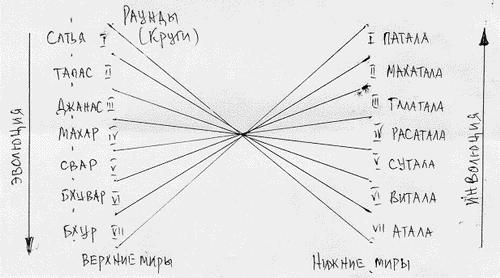 Раунды
(Круги)
Сатья I
I Патала
Тапас II
II Махатала
Джанас III
III Талатала
Махар IV
IV Расатала
Свар V
V Сутала
Бхувар VI
VI Витала
Бхур VII
VII Атала
Эволюция
Инволюция
Верхние миры
Нижние миры